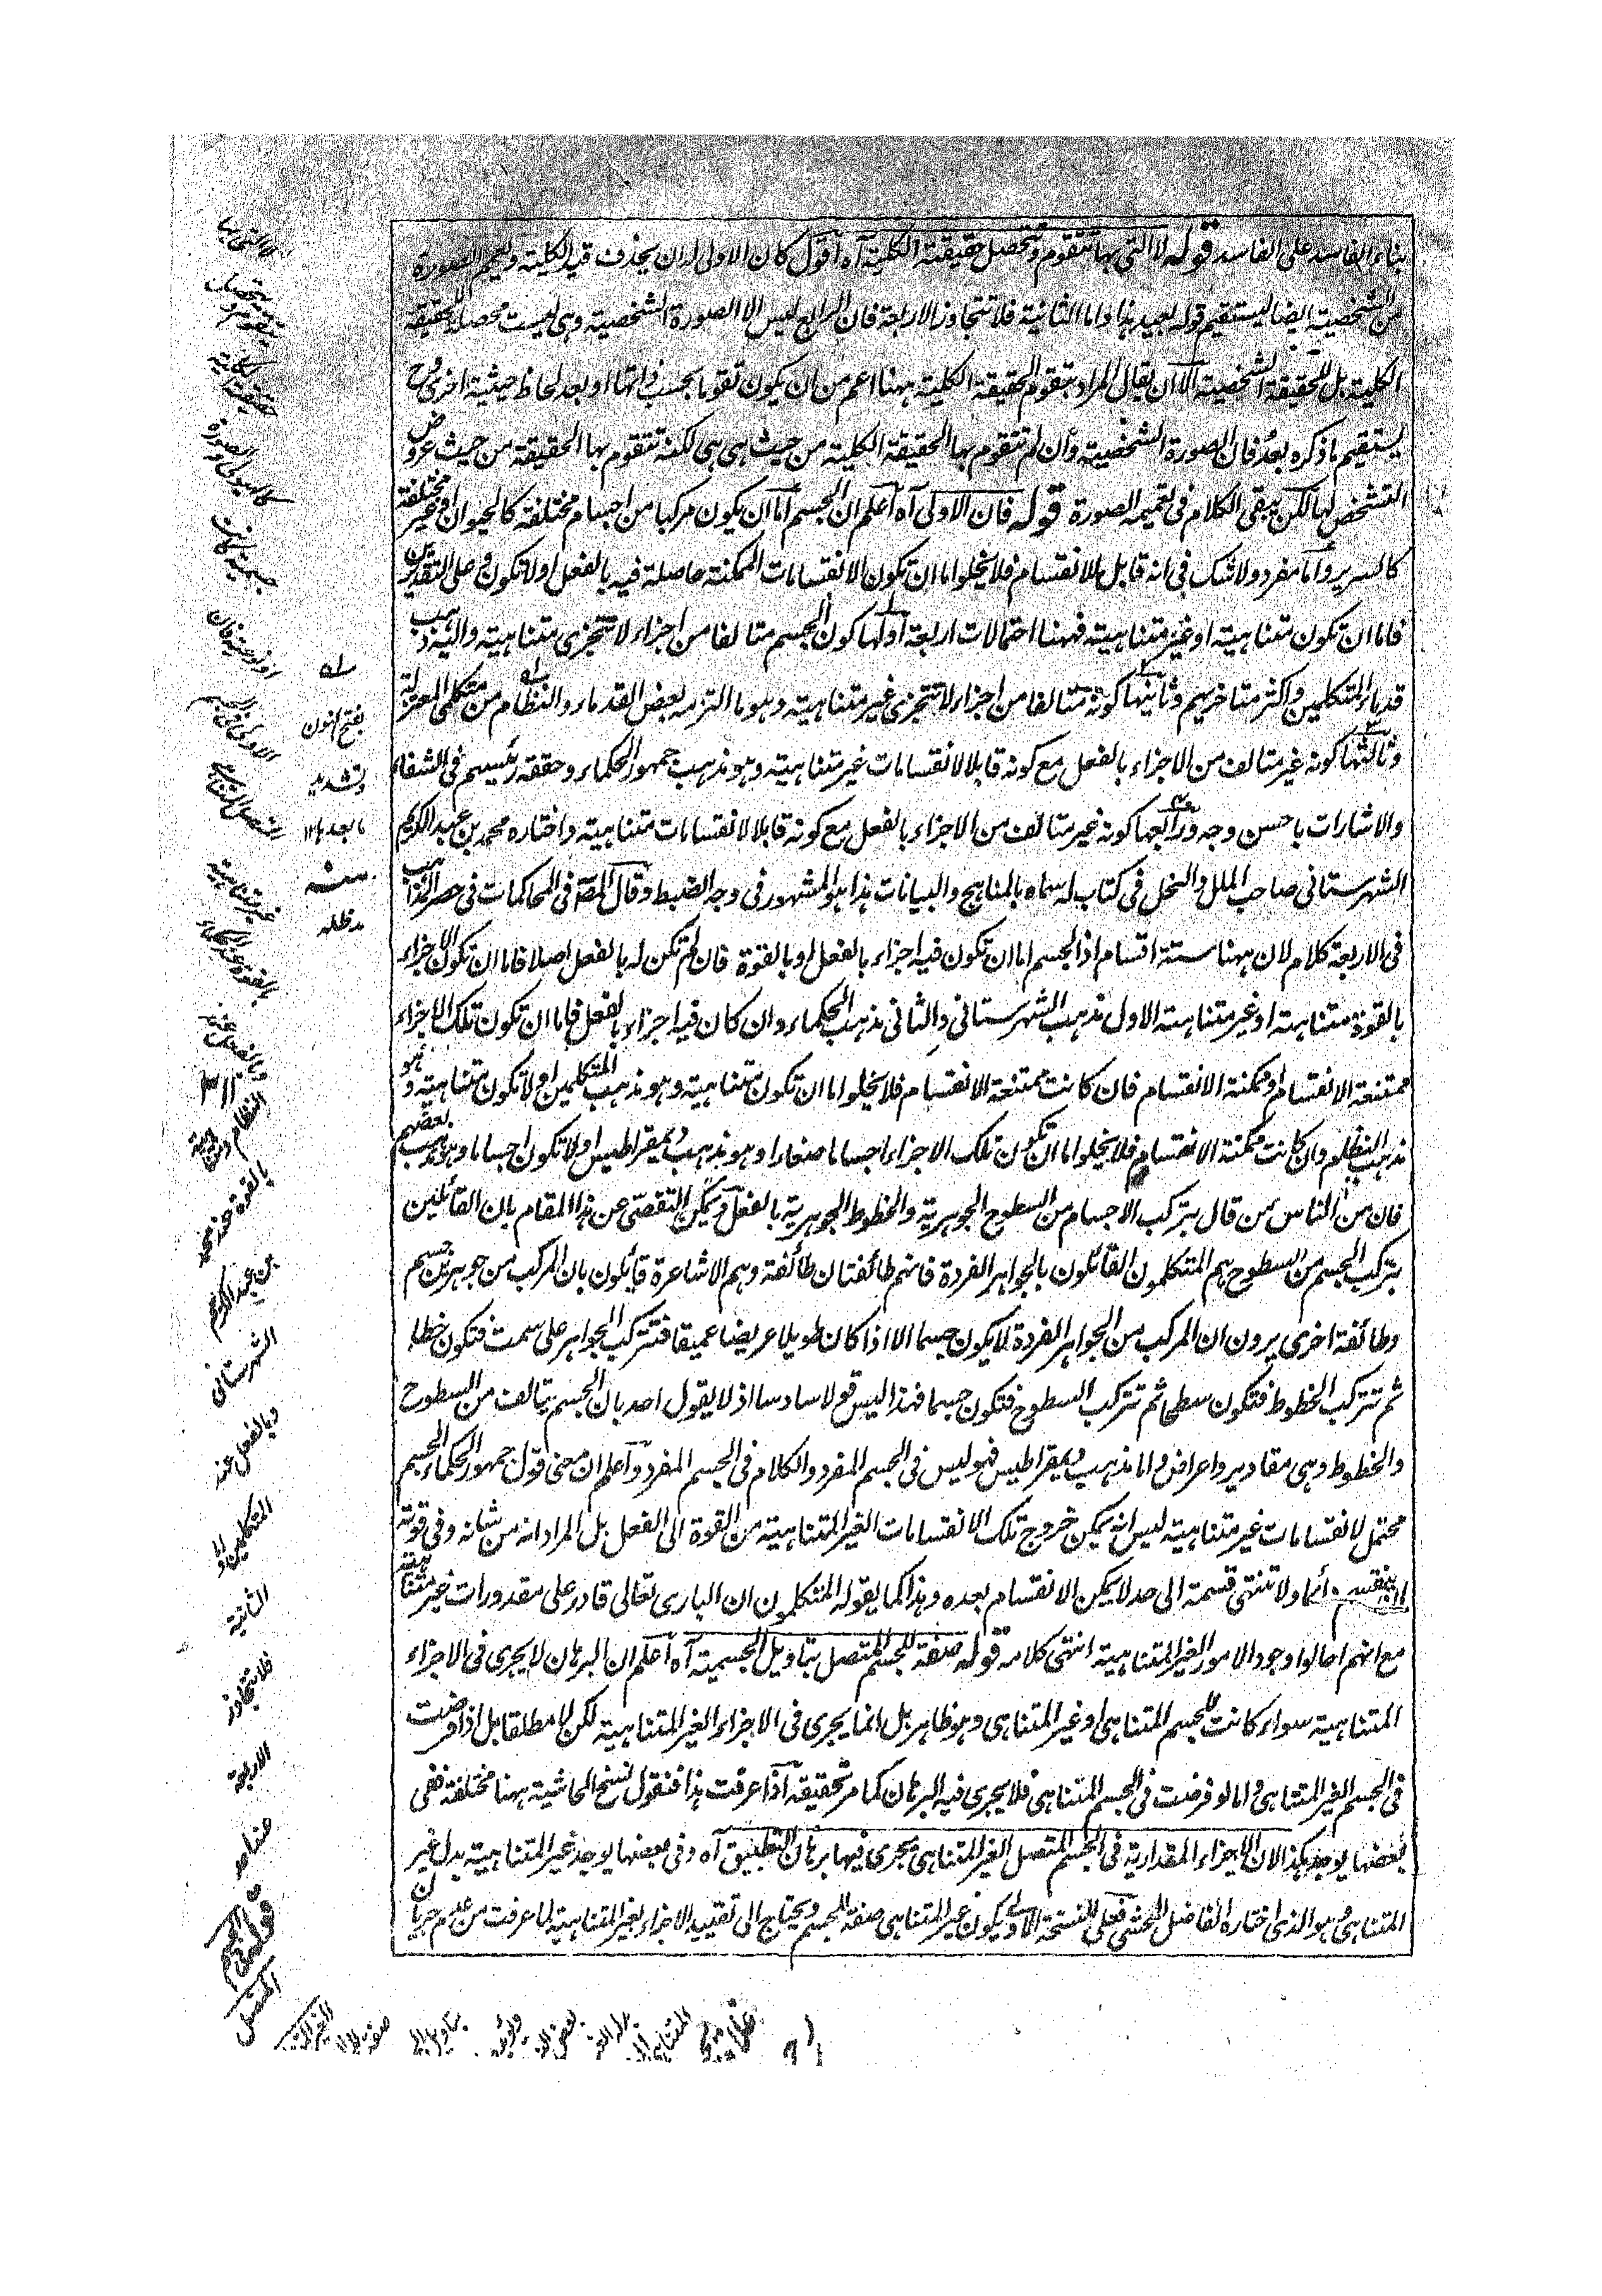 بناء الفاسد على الفاسد قوله لا التي بها تتقوم وتتحصل حقيقته الكلية آه اقول كان الاولى له ان يحذف قيد الكلية ويعمم الصورة
من الشخصية ايضا ليستقيم قوله بعيد هذا واما الثانية فلا تتجاوز الاربعة فان الرابع ليس الا الصورة الشخصية وهي ليست محصلة للحقيقة
الكلية بل للحقيقة الشخصية الا ان يقال المراد بتقوم الحقيقة الكلية ههنا اعم من ان يكون تقوما بحسب ذاتها او بعد لحاظ حيثية اخرى وح
يستقيم ما ذكره بعد فان الصورة الشخصية وان لم تتقوم بها الحقيقة الكلية من حيث هي هي لكنه تتقوم بها الحقيقة من حيث عروض
التشخص لها لكن يبقى الكلام في تعميم الصورة قوله فان الاولى آه اعلم ان الجسم اما ان يكون مركبا من اجسام مختلفة كالحيوان او غير مختلفة
كالسرير واما مفرد ولا شك في انه قابل للانقسام فلا يخلوا اما ان تكون الانقسامات الممكنة حاصلة فيه بالفعل او لا تكون وعلى التقديرين
فاما ان تكون متناهية او غير متناهية فههنا احتمالات اربعة اولها كون الجسم متالفا من اجزاء لا تتجزى متناهية واليه ذهب
قدماء المتكلمين واكثر متاخريهم وثانيها كونه متالفا من اجزاء لا تتجزى غير متناهية وهو ما التزمه بعض القدماء والنظام من متكلمي المعتزلة
وثالثها كونه غير متالف من الاجزاء بالفعل مع كونه قابلا لانقسامات غير متناهية وهو مذهب جمهور الحكماء وحققه رئيسهم في الشفاء
والاشارات باحسن وجه ورابعها كونه غير متالف من الاجزاء بالفعل مع كونه قابلا لانقسامات متناهية واختاره محمد بن عبد الكريم
الشهرستاني صاحب الملل والنحل في كتاب له سماه بالمناهج والبيانات هذا هو المشهور في وجه الضبط وقال المص في المحاكمات في حصر المذاهب
في الاربعة كلام لان ههنا ستة اقسام اذ الجسم اما ان تكون فيه اجزاء بالفعل او بالقوة فان لم تكن له بالفعل اصلا فاما ان تكون الاجزاء
بالقوة متناهية او غير متناهية الاول مذهب الشهرستاني والثاني مذهب الحكماء وان كان فيه اجزاء بالفعل فاما ان تكون تلك الاجزاء
ممتنعة الانقسام او ممكنة الانقسام فان كانت ممتنعة الانقسام فلا يخلوا اما ان تكون متناهية وهو مذهب المتكلمين او لا تكون متناهية وهو
مذهب النظام وان كانت ممكنة الانقسام فلا يخلوا اما ان تكون تلك الاجزاء اجساما صغارا وهو مذهب ديمقراطيس او لا تكون اجساما وهو مذهب بعضهم
فان من الناس من قال بتركب الاجسام من السطوح الجوهرية والخطوط الجوهرية بالفعل ويمكن التفصى عن هذا المقام بان القائلين
بتركب الجسم من السطوح هم المتكلمون القائلون بالجواهر الفردة فانهم طائفتان طائفة وهم الاشاعرة قائلون بان المركب من جوهرين جسم
وطائفة اخرى يرون ان المركب من الجواهر الفردة لا يكون جسما الا اذا كان طويلا عريضا عميقا فتتركب الجواهر على سمت فتكون خطا
ثم تتركب الخطوط فتكون سطحا ثم تتركب السطوح فتكون جسما فهذا ليس قولا سادسا اذ لا يقول احد بان الجسم يتالف من السطوح
والخطوط وهي مقادير واعراض واما مذهب ديمقراطيس فهو ليس في الجسم المفرد والكلام في الجسم المفرد واعلم ان معنى قول جمهور الحكماء الجسم
محتمل لانقسامات غير متناهية ليس انه يمكن خروج تلك الانقسامات الغير المتناهية من القوة الى الفعل بل المراد انه من شانه وفي قوته
ان ينقسم دائما ولا تنتهى قسمة الى حد لا يمكن الانقسام بعده وهذا كما يقوله المتكلمون ان البارى تعالى قادر على مقدورات غير متناهية
مع انهم احالوا وجود الامور الغير المتناهية انتهى كلامه قوله صفة للجسم المتصل بتاويل الجسمية آه اعلم ان البرهان لا يجرى في الاجزاء
المتناهية سواء كانت للجسم المتناهي او غير المتناهي وهو ظاهر بل انما يجرى في الاجزاء الغير المتناهية لكن لا مطلقا بل اذا فرضت
في الجسم الغير المتناهي واما لو فرضت في الجسم المتناهي فلا يجرى فيه البرهان كما مر تحقيقه اذا عرفت هذا فنقول نسخ الحاشية ههنا مختلفة ففي
بعضها يوجد هكذا لان الاجزاء المقدارية في الجسم المتصل الغير المتناهي يجرى فيها برهان التطبيق آه وفي بعضها يوجد غير المتناهية بدل غير
المتناهي وهو الذى اختاره الفاضل المحشي فعلى النسخة الاولى يكون غير المتناهي صفة للجسم ويحتاج الى تقييد الاجزاء بغير المتناهية لما عرفت من عدم جريان
بفتح النون
وتشديد
ما بعدها ١٢
منه
مد ظله
لا التي بها
تتقوم وتتحصل
حقيقته الكلية
كالهيولى والصورة
جسمية كانت
او نوعية فان
الاولى في الجسم
المتصل
غير متناهية
بالقوة عند الحكماء
وبالفعل عند
النظام ومتناهية
بالقوة عند محمد
بن عبد الكريم
الشهرستاني
وبالفعل عند
المتكلمين واما
الثانية
فلا تتجاوز
الاربعة
قوله في الجسم
المتصل